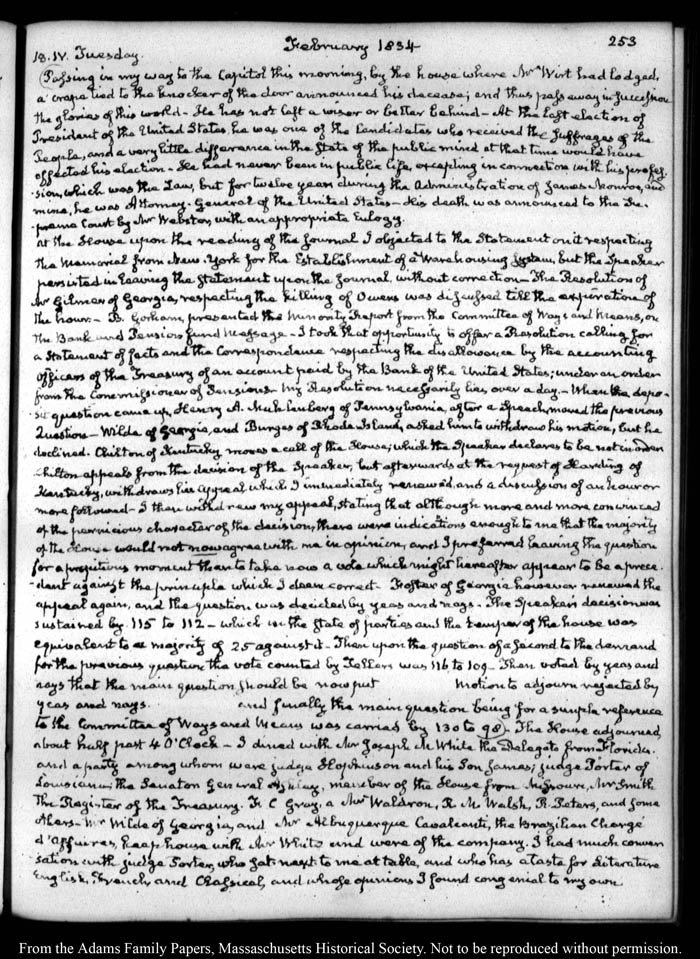 February 1834
253
18. IV. Tuesday.
Passing in my way to the Capitol this morning, by the house where Mr Wirt had lodged,
a crape tied to the knocker of the door announced his decease; and thus pass away in succession
the glories of this world – He has not left a wiser or better behind – At the last election of
President of the United States he was one of the Candidates who received the suffrages of the
People, and a very little difference in the State of the public mind at that time would have
effected his election. He had never been in public life, excepting in connection with his profes-
-sion, which was the Law, but for twelve years during the Administration of James Monroe, and
mine, he was Attorney-General of the United States – His death was announced to the Su-
-preme Court by Mr Webster, with an appropriate Eulogy.
At the House upon the reading of the Journal I objected to the Statement on it respecting
the Memorial from New-York for the Establishment of a Warehousing System, but the Speaker
persisted in leaving the Statement upon the Journal without correction – The Resolution of
Mr Gilmer of Georgia, respecting the killing of Owens was discussed till the expiration of
the hour – B. Gorham, presented the Minority Report from the Committee of Ways and Means, on
the Bank and Pension fund Message – I took that opportunity to offer a Resolution calling for
a Statement of facts and the Correspondence respecting the disallowance by the accounting
Officers of the Treasury of an account paid by the Bank of the United States; under an order
from the Commissioner of Pensions – My Resolution necessarily lies over a day – When the depo-
sit question came up, Henry A. Muhlenberg of Pennsylvania, after a Speech, moved the previous
Question – Wilde of Georgia, and Burges of Rhode Island, asked him to withdraw his motion, but he
declined. Chilton of Kentucky moves a call of the House; which the Speaker declares to be not in order
Chilton appeals from the decision of the Speaker, but afterwards at the request of Hardin of
Kentucky, withdraws his appeal which I immediately renewed, and a discussion of an hour or
more followed – I then withdrew my appeal, stating that although more and more convinced
of the pernicious character of the decision, there were indications enough to me that the majority
of the House would not now agree with me in opinion, and I preferred leaving the question
for a propitious moment than to take now a vote which might hereafter appear to be a prece-
-dent against the principle which I deem correct. Foster of Georgia however renewed the
appeal again, and the question was decided by yeas and nays – The Speakers decision was
sustained by 115 to 112 – which in the State of parties and the temper of the house was
equivalent to a majority of 25 against it – Then upon the question of a second to the demand
for the previous question the vote counted by Tellers was 116 to 109 – Then voted by yeas and
nays that the main question should be now put motion to adjourn rejected by
yeas and nays. and finally the main question being for a simple reference
to the Committee of Ways and Means was carried by 130 to 98 – The House adjourned
about half past 4 O'Clock – I dined with Mr Joseph M. White the Delegate from Florida.
and a party among whom were judge Hopkinson and his Son James; judge Porter of
Louisiana, the Senator General Ashley, member of the House from Missouri, Mr Smith
The Register of the Treasury. F. C. Gray, a Mr Waldron, R. M. Walsh, R. Peters, and some
others – Mr Wilde of Georgia, and Mr Albuquerque Cavalcanti, the Brazilian Chargé
d'Affaires, keep house with Mr White and were of the company. I had much conver-
sation with judge Porter, who sat next to me at table, and who has a taste for Literature
English, French, and Classical, and whose opinions I found congenial to my own
From the Adams Family Papers, Massachusetts Historical Society. Not to be reproduced without permission.